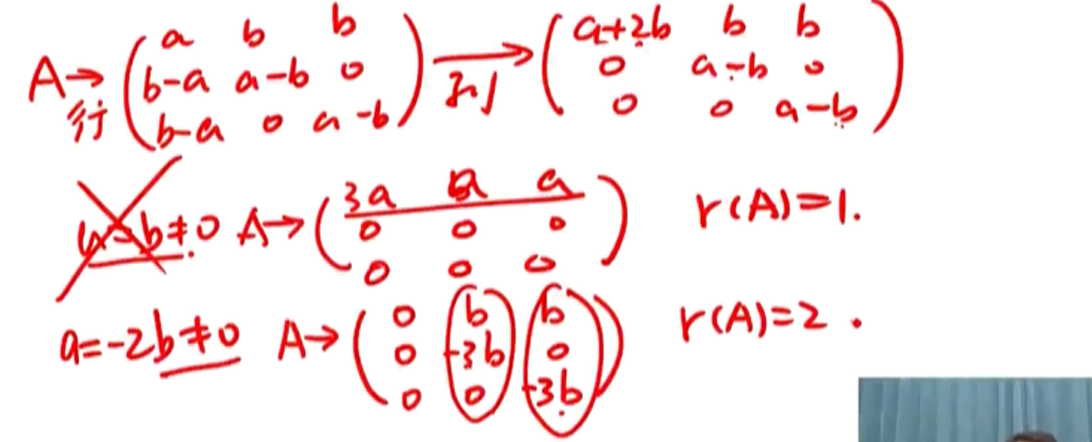 A→行 ( a b b ; b-a a-b 0 ; b-a 0 a-b ) →列 ( a+2b b b ; 0 a-b 0 ; 0 0 a-b )
a=b≠0 A→ ( 3a a a ; 0 0 0 ; 0 0 0 ) r(A)=1.
a=-2b≠0 A→ ( 0 b b ; 0 -3b 0 ; 0 0 -3b ) r(A)=2.